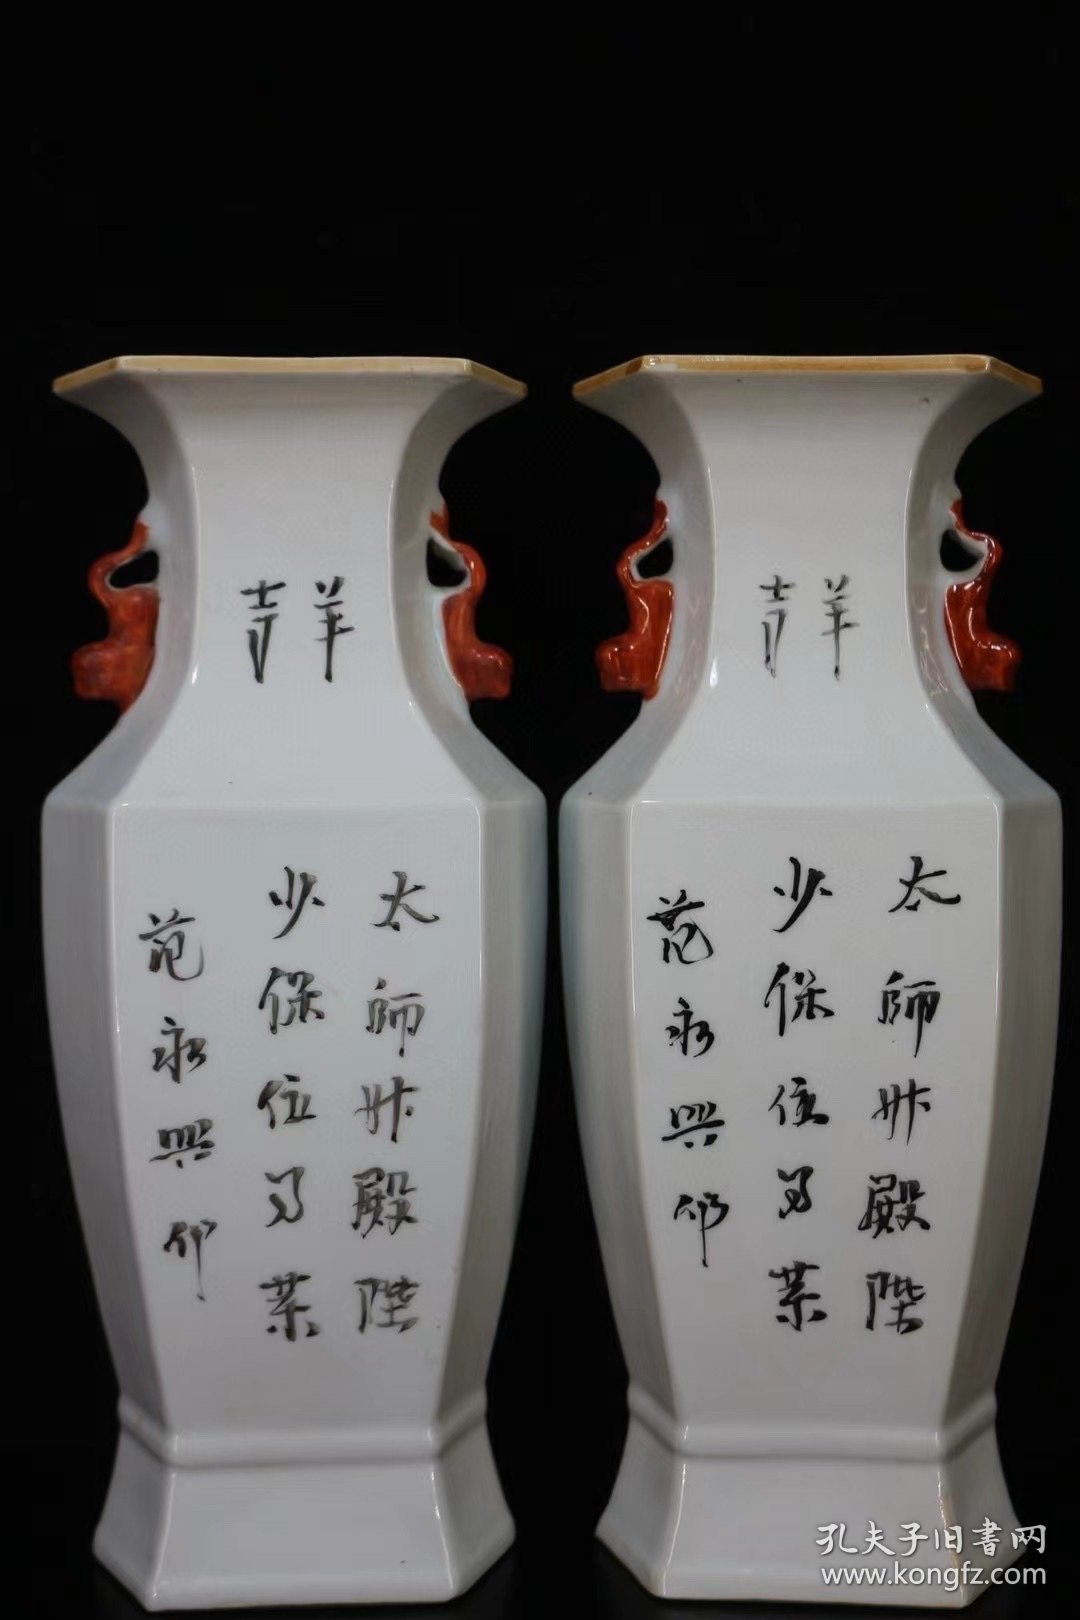 吉羊
太師升殿陛
少保位
范永興作
吉羊
太師升殿陛
少保位
范永興作
孔夫子旧書网
www.kongfz.com